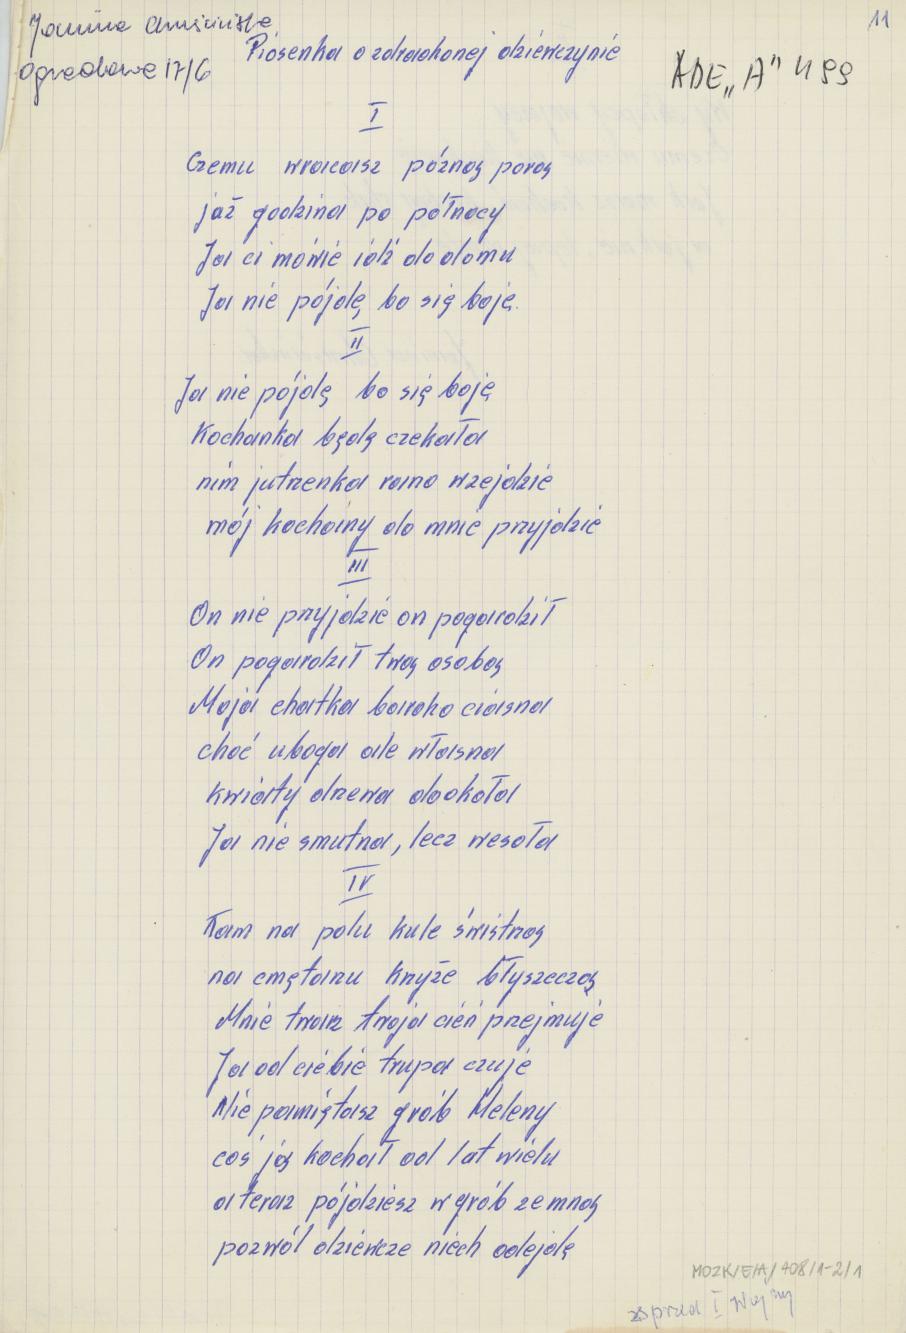 Janina
11
Ogrodowa 17/6
Piosenka o zdradzonej dziewczynie
ADE „A" 1199
I
Czemu wracasz późną porą
już godzina po północy
Ja ci mówię idź do domu
Ja nie pójdę, bo się boję.
II
Ja nie pójdę bo się boję
Kochanka będę czekała
nim jutrzenka rano wzejdzie
mój kochany do mnie przyjdzie
III
On nie przyjdzie on pogardził
On pogardził twą osobą
Moja chatka bardzo ciasna
choć uboga ale własna
kwiaty drzewa dookoła
Ja nie smutna, lecz wesoła
IV
Tam na polu kule świstzą
na cmętarzu krzyże błyszeczą
Mnie twarz twoja cień przejmuje
Ja od ciebie trupa czuje
Nie pamiętasz grób Heleny
coś ją kochał od lat wielu
a teraz pójdziesz w grób zemną
pozwól dziewcze niech odejdę
MOZK/E/A/408/1-2/1
zsprzed I Wojny